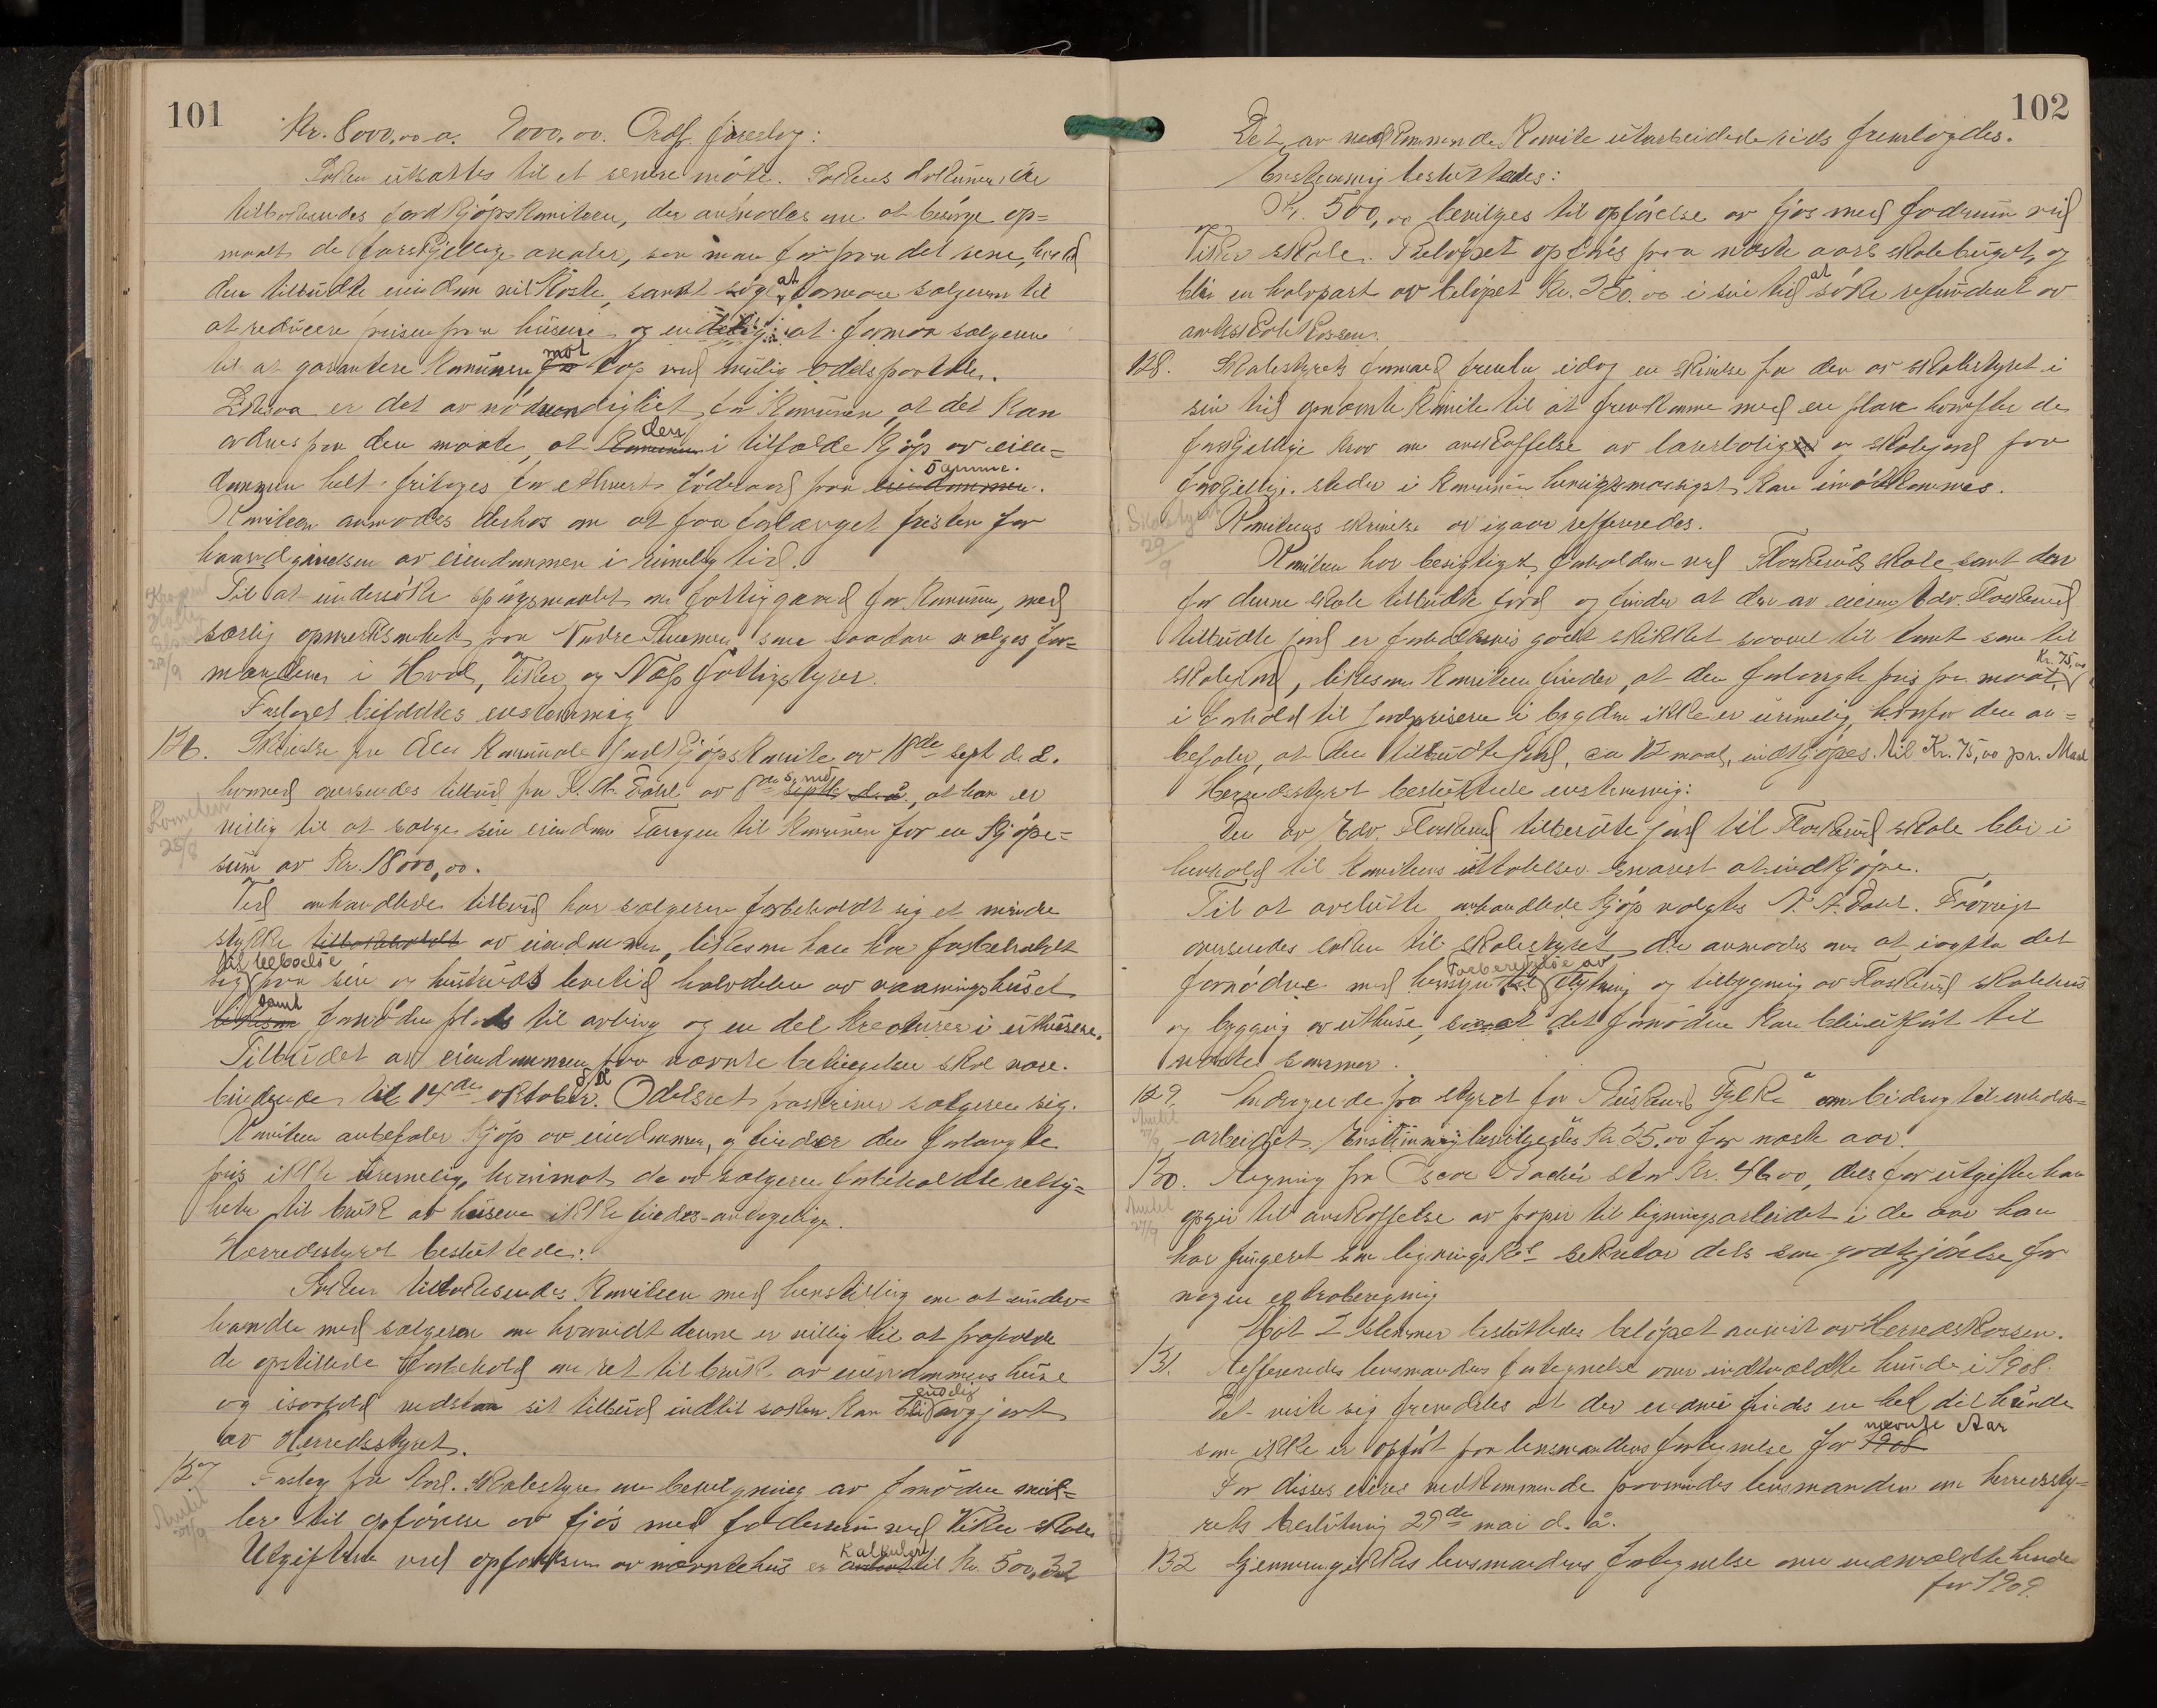 101
Kr. 8000,00 a. 9000,00. Ordf. foreslog:
Saken utsættes til et senere møte. Sakens dokumenter
tilbakesendes jordkjøpskomiteen, der anmodes om at besørge op=
maalt de forskjellige arealer, som man før paa det rene, hvad
den tilbudte eiendom vil koste, samt søge at formaa sælgeren til
at reducere prisen paa husene og endelig at formaa sælgeren
til at garantere Komunen for mot tap ved mulig odelsprættelse.
Likesaa er det av nødvendighet for Komunen at det kan
ordnes paa den maate, at Komunen den i tilfælde kjøp av eien=
dommen helt fritages for ethvert føderaad paa eiendommen. samme.
Komiteen anmodes derhos om at faa forlænget fristen for
haandgivelsen av eiendommen i rimelig tid.
Til at undersøke spørgsmaalet om fattiggaard for Komunen, med
særlig opmerksomhet paa Nedre som saadan vælges for=
mændene i Hval, Viker og Næs fattigstyrer.
Forslaget bifaldtes enstemmig
126. Skrivelse fra Aals Komunale jordkjøpskomite av 18de sept. d. å.
hvorved oversendes tilbud fra K. A. Dahl av 8de septb. d. å. s. md., at han er
villig til at sælge sin eiendom Tangen til Komunen for en kjøpe=
sum av Kr. 18000,00.
Komiteen 25/8
Ved omhandlede tilbud har sælgeren forbeholdt sig et mindre
stykke tilbakeholdt av eiendommen, likesom han har forbeholdt
sig til beboelse paa sin og hustrues levetid halvdelen av vaaningshuset
likesom samt fornøden plads til avling og en del kreaturer i uthusene.
Tilbudet av eiendommen paa nævnte betingelser skal være
bindende til 14de oktober d. å. Odelsret paaskriver sælgeren sig.
Komiteen anbefaler kjøp av eiendommen, og finder den forlangte
pris ikke urimelig, hvorimot de av sælgeren forbeholdte rettig=
heter til bruk av husene ikke findes antagelige.
Herredsstyret besluttede:
Saken tilbakesendes Komiteen med henstilling om at under=
handle med sælgeren om hvorvidt denne er villig til at frafalde
de opstillede forbehold om ret til bruk av eiendommens huse
og isaafald vedstaa sit tilbud indtil saken kan bli endelig avgjort
av Herredsstyret.
127. Forslag fra Aals Skolestyre om bevilgning av fornødne mid=
ler til opførelse av fjøs med foderrum ved Viker skole
Utgiftene ved opførelsen av nævnte hus er anslaat kalkulert til Kr. 500,32
Anmeldt 27/9
102
Det av vedkommende Komite utarbeidede rids fremlagdes.
Enstemmig besluttedes:
Kr. 500,00 bevilges til opførelse av fjøs med fodrum ved
Viker skole. Beløpet opføres paa næste aars skolebuget, og
blir en halvpart av beløpet Kr. 250.00 i sin tid at søke refundert av
amtsskolekassen.
128. Skolestyrets formand fremla idag en skrivelse fra den av skolestyret i
sin tid opnævnte komite til at fremkomme med en plan hvorefter de
forskjellige krav om anskaffelse av lærerboliger og skolejord paa
forskjellige steder i Komunen hensigtsmæssigst kan imøtekommes.
Skolestyret 29/9
Komiteens skrivelse av igaar reffereredes.
Komiteen har besigtiget forholdene ved Flaskerud skole samt den
for denne skole tilbudte jord og finder at den av eieren Edv. Flaskerud
tilbudte jord er forholdsvis godt skikket saavel til tomt som til
skolejord, likesom Komiteen finder, at den forlangte pris pr. maal, Kr. 75,00
i forhold til jordpriserne i bygden ikke er urimelig, hvorfor den an=
befaler, at den tilbudte jord, ca 12 maal, indkjøpes til Kr. 75,00 pr. Maal
Herredsstyret besluttede enstemmig:
Den av Edv. Flaskerud tilbudte jord til Flaskerud skole blir i
henhold til komiteens uttalelser snarest at indkjøpe.
Til at avslutte omhandlede kjøp valgtes N. A. Dahl. Forøvrigt
oversendes saken til skolestyret, der anmodes om at iagtta det
fornødne med hensyn til Forberedelse av flytning og tilbygning av Flaskerud skolehus
og bygging av uthuse, saa at det fornødne kan bli utført til
næste sommer.
129. Andragende fra styret for Buskerud Fylke om bidrag til
arbeidet. Enstemmig bevilgedes Kr 25,00 for næste aar.
Anmeldt 27/9
130. Regning fra Oscar stor Kr. 46.00, dels for utgifter han
opgir til anskaffelse av papir til ligningsarbeidet i de aar han
har fungeret som ligningsk. sekretær dels som godtgjørelse for
nogen extraberegning
Mot 2 stemmer besluttedes beløpet anvist av Herredskassen.
131. Reffereredes lensmandens fortegnelse over indtvældte hunde i 1908.
Det viste sig fremdeles at der endnu findes en hel del hunde
som ikke er opført paa lensmandens fortegnelse for 1908 nævnte Aar
For disses eieres vedkommende paamindes lensmanden om herredssty=
rets beslutning 29de mai d. å.
132 Gjennemgikkes lensmandens fortegnelse over indmældte hunde
for 1909.